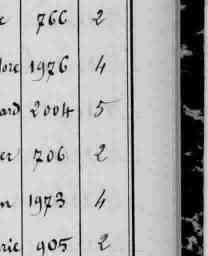 e 766 2
lore 1976 4
ard 2004 5
er 706 2
n 1973 4
rie 905 2